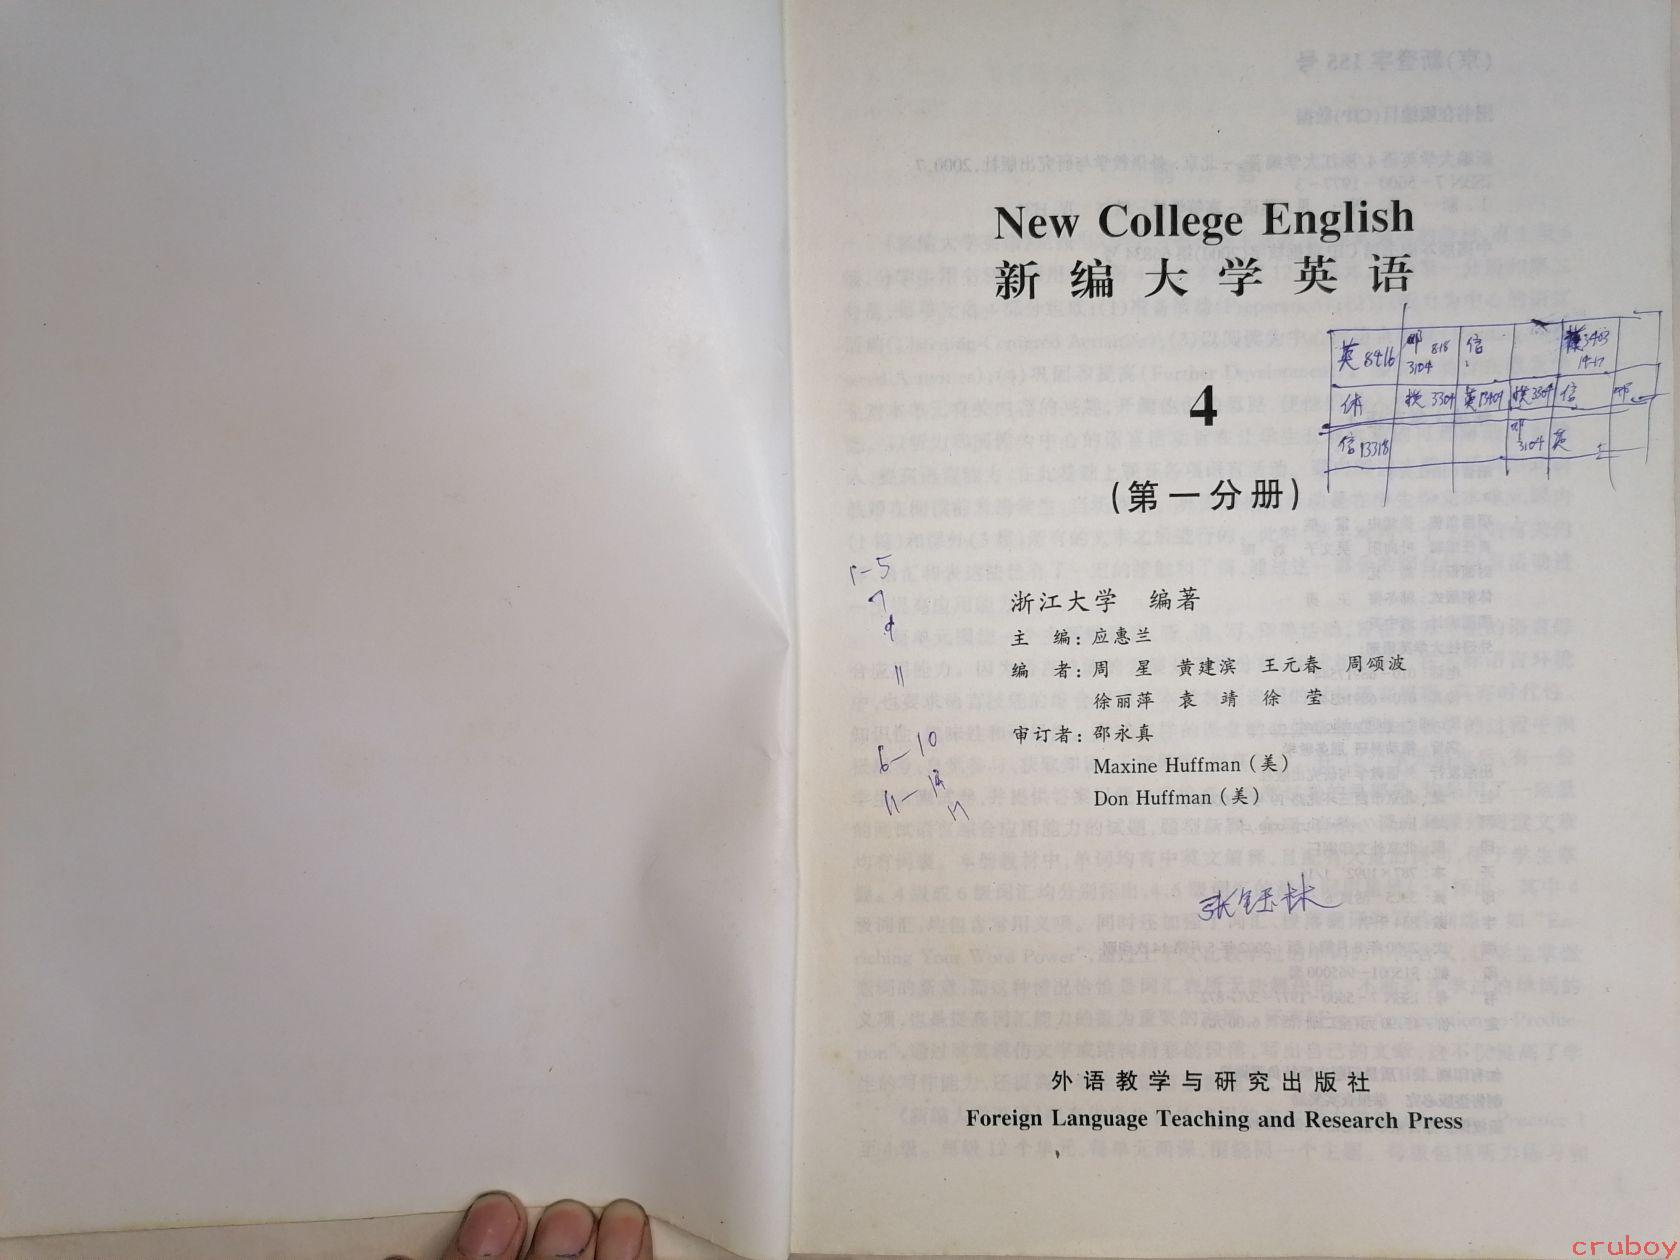 New College English
新编大学英语
4
(第一分册)
英 8416 邮 818 3104 信 模 3403 14-17
体 模 3304 英 13404 模 3304 信 邮
信 13318 邮 3104 英
1-5
7
9
11
6-10
11-14
17
浙江大学 编著
主 编：应惠兰
编 者：周 星 黄建滨 王元春 周颂波
徐丽萍 袁 靖 徐 莹
审订者：邵永真
Maxine Huffman (美)
Don Huffman (美)
张钰林
外语教学与研究出版社
Foreign Language Teaching and Research Press
cruboy